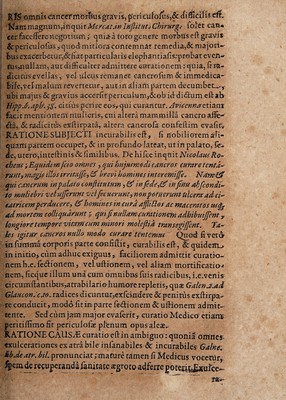 RIS omnis cancer morbus gravis, periculosus, & difficilis est.
Nam magnum, inquit Mercat. in Institut. Chirurg. solet can-
cer facessere negotium; quia à toto genere morbus est gravis
& periculosus, quod mitiora contemnat remedia, & majori-
bus exacerbetur; & si fiat particularis elephantiasis: probat even-
tus, nullam, aut difficulter admittere curationem; quia, si ra-
dicitus evellas, vel ulcus remanet cancrosum & immedica-
bile, vel malum revertetur, aut in aliam partem decumbet,
ubi majus & gravius accersit periculum, & ob id dictum est ab
Hipp. 6. aph. 38. citius perire eos, qui curantur. Avicenna etiam
facit mentionem mulieris, cui altera mammillâ cancro affe-
ctâ, & radicitùs exstirpatâ, altera cancrosa confestim evasit.
RATIONE SUBJECTI incurabilis est, si nobiliorem ali-
quam partem occupet, & in profundo lateat, ut in palato, se-
de, utero, intestinis & similibus. De hisce inquit Nicolaus Ro-
cheus; Equidem scio omnes, qui hujusmodi cancros curare tenta-
runt, magis illos irritasse, & brevi homines interemisse. Nam &
qui cancrum in palato consistentem, & in sede, & in sinu abscondi-
to muliebri vel usserunt vel secuerunt, non potuerunt ulcera ad ci-
catricem perducere, & homines in cura afflictos ac maceratos usq;
ad mortem colliquarunt; qui si nullam curationem adhibuissent,
longiore tempore vitam cum minori molestiâ transegissent. Ta-
les igitur cancros nullo modo curare tentamus. Quod si verò
in summâ corporis parte consistit, curabilis est, & quidem
in initio, cùm adhuc exiguus, faciliorem admittit curatio-
nem h.e. sectionem, vel ustionem, vel aliam mortificatio-
nem, sicque illum unà cum omnibus suis radicibus, i.e. venis
circumstantibus, atrabilario humore repletis, quæ Galen. 2. ad
Glaucon. c. 10. radices dicuntur, exscindere & penitus exstirpa-
re conducit, modò sit in parte sectionem & ustionem admit-
tente. Sed cùm jam major evaserit, curatio Medico etiam
peritissimo sit periculosæ plenum opus aleæ.
RATIONE CAUSÆ curatio est in ambiguo: quoniā omnes
exulcerationes ex atrâ bile insanabiles & incurabiles Galen.
lib. de atr. bil. pronunciat; maturè tamen si Medicus vocetur,
spem de recuperandâ sanitate ægroto adferre poterit. Exulce-
ra-